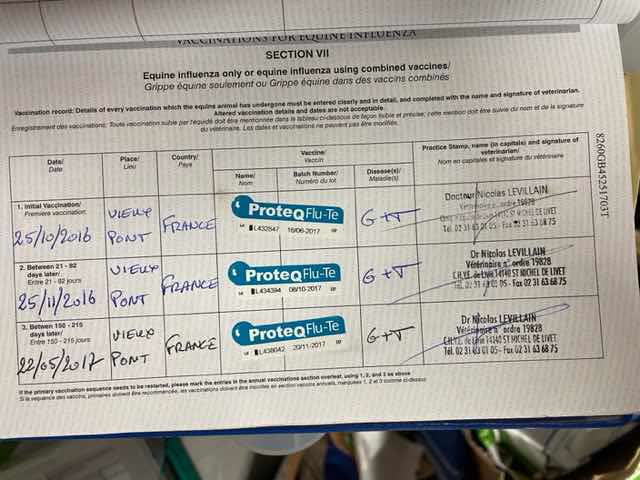 VACCINATIONS FOR EQUINE INFLUENZA
SECTION VII
Equine influenza only or equine influenza using combined vaccines/
Grippe équine seulement ou Grippe équine dans des vaccins combinés
Vaccination record: Details of every vaccination which the equine animal has undergone must be entered clearly and in detail, and completed with the name and signature of veterinarian.
Altered vaccination details and dates are not acceptable.
Enregistrement des vaccinations: Toute vaccination subie par l'équidé doit être mentionnée dans le tableau ci-dessous de façon lisible et précise; cette mention doit être suivie du nom et de la signature
du vétérinaire. Les dates et vaccinations ne peuvent pas être modifiés.
Date/
Date
Place/
Lieu
Country/
Pays
Vaccine/
Vaccin
Name/
Nom
Batch Number/
Numéro du lot
Disease(s)/
Maladie(s)
Practice Stamp, name (in capitals) and signature of
veterinarian/
Nom en capitales et signature du vétérinaire
8260GB45251703T
1. Initial Vaccination/
Première vaccination:
25/10/2016
VIEUX
PONT
FRANCE
ProteqFlu-Te
L432847 16/06-2017
G+T
Docteur Nicolas LEVILLAIN
Vétérinaire n° ordre 19828
14140 ST MICHEL DE LIVET
Tél. 02 31 63 01 05 - Fax 02 31 63 68 75
2. Between 21 - 92
days later/
Entre 21 - 92 jours
25/11/2016
VIEUX
PONT
FRANCE
ProteqFlu-Te
L434394 08/10-2017
G+T
Dr Nicolas LEVILLAIN
Vétérinaire n° ordre 19828
C.H.V.E. de Livet 14140 ST MICHEL DE LIVET
Tél. 02 31 63 01 05 - Fax 02 31 63 68 75
3. Between 150 - 215
days later/
Entre 150 - 215 jours
22/05/2017
VIEUX
PONT
FRANCE
ProteqFlu-Te
L438642 20/11-2017
G+T
Dr Nicolas LEVILLAIN
Vétérinaire n° ordre 19828
C.H.V.E. de Livet 14140 ST MICHEL DE LIVET
Tél. 02 31 63 01 05 - Fax 02 31 63 68 75
If the primary vaccination sequence needs to be restarted, please mark the entries in the annual vaccinations section overleaf, using 1, 2, and 3 as above
Si la sequence des vaccins, primaires doivent être recommencée, les vaccinations doivent être inscrites en section vaccins annuels, marquées 1, 2 et 3 comme ci-dessus